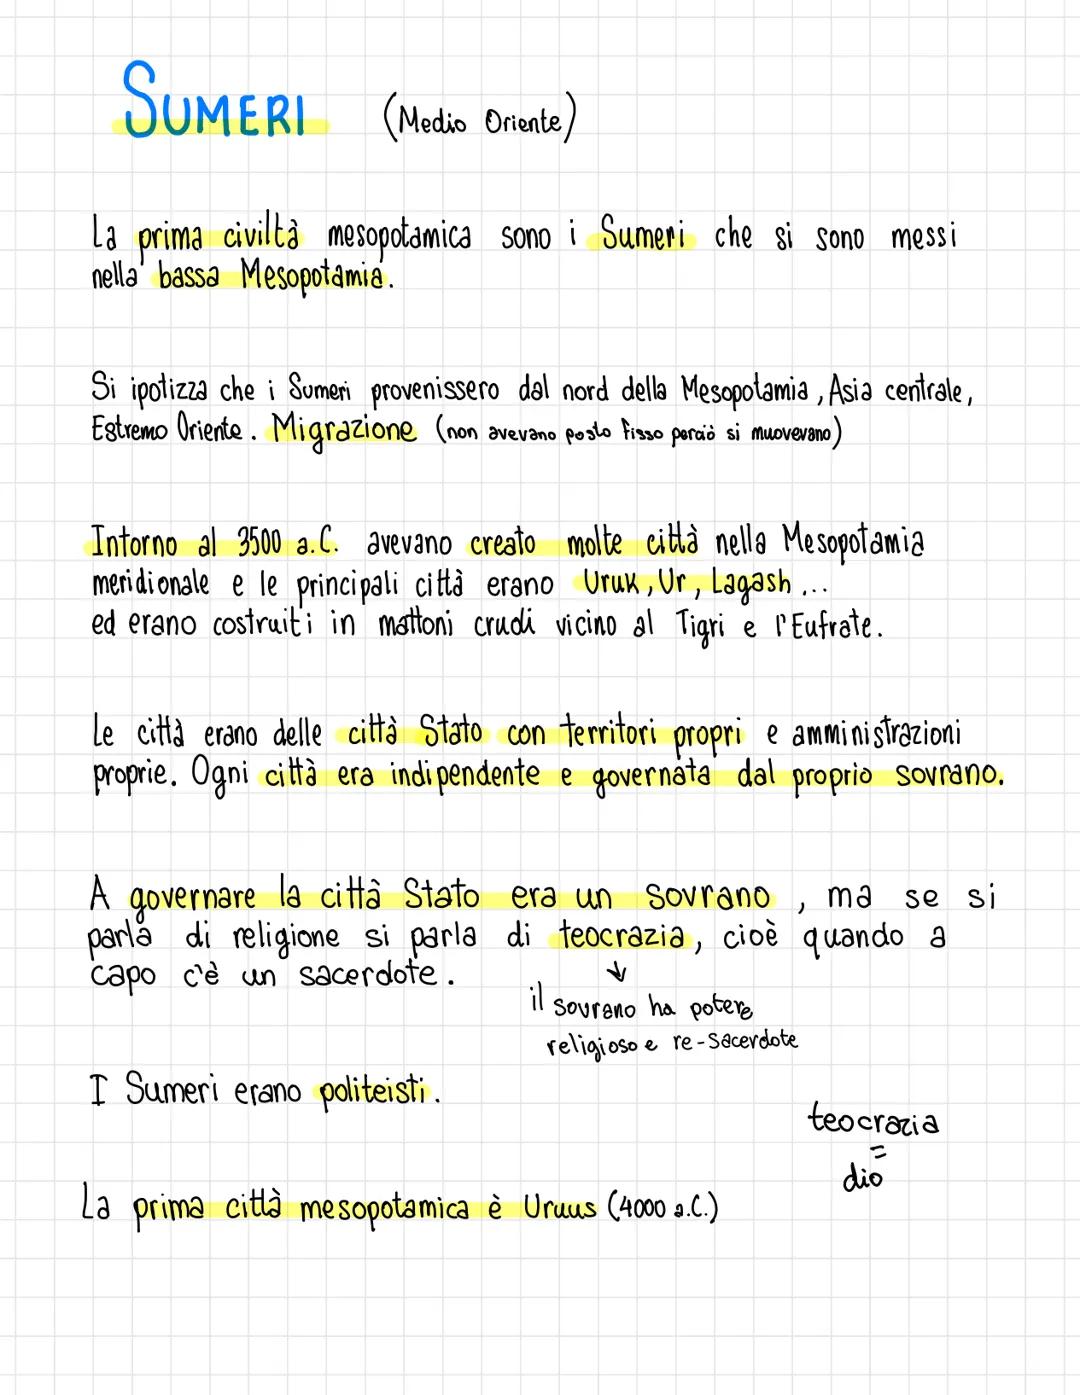 SUMERI (Medio Oriente)
La prima civiltà mesopotamica sono i Sumeri che si sono messi
nella bassa Mesopotamia.
Si ipotizza che i Sumeri provenissero dal nord della Mesopotamia, Asia centrale,
Estremo Oriente. Migrazione (non avevano posto fisso perciò si muovevano)
Intorno al 3500 a.C. avevano creato molte città nella Mesopotamia
meridionale e le principali città erano Uruk, Ur, Lagash...
ed erano costruiti in mattoni crudi vicino al Tigri e l'Eufrate.
Le città erano delle città Stato con territori propri e amministrazioni
proprie. Ogni città era indipendente e governata dal proprio sovrano.
A governare la città Stato era un sovrano, ma se si
parla di religione si parla di teocrazia, cioè quando a
capo c'è un sacerdote.
↓
il sovrano ha potere
religioso e re-sacerdote
I Sumeri erano politeisti.
teocrazia
=
dio
La prima città mesopotamica è Uruus (4000 a.C.)